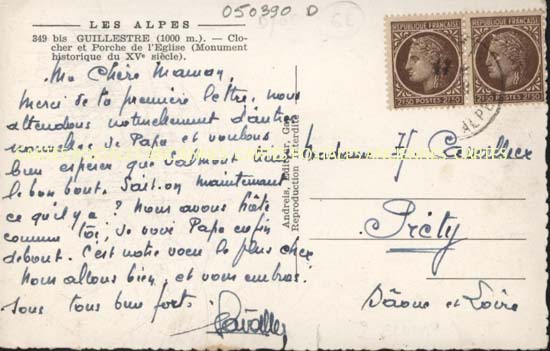 050390 D
LES ALPES
349 bis GUILLESTRE (1000 m.). — Clo-
cher et Porche de l'Eglise (Monument
historique du XVe siècle).
Ma Chère Maman,
Merci de ta première lettre, nous
attendons naturellement d'autres
nouvelles de Papa et voulons
bien espérer que Salmont tient
le bon bout. Sait-on maintenant
ce qu'il y a ? Nous avons hâte
comme toi, de voir Papa enfin
debout. C'est notre voeu le plus cher
Nous allons bien, et vous embras.
sons tous bien fort.
Cavallier
Andreis, Editeur, Gap
Reproduction interdite
REPUBLIQUE FRANÇAISE
2F50 POSTES 2F50
REPUBLIQUE FRANÇAISE
2F50 POSTES 2F50
ALPES
Madame Cavallier
Préty
Saône et Loire